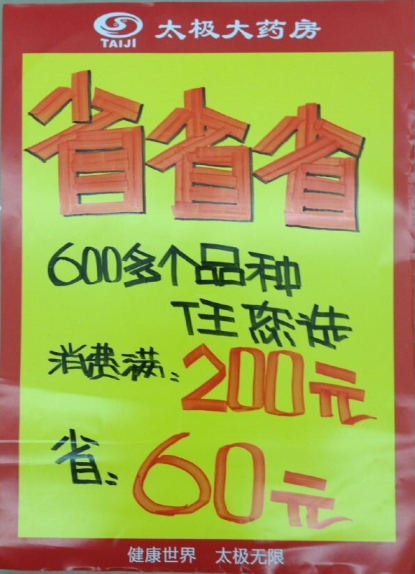 TAIJI 太极大药房
省省省
600多个品种
任您选
消费满:200元
省:60元
健康世界 太极无限